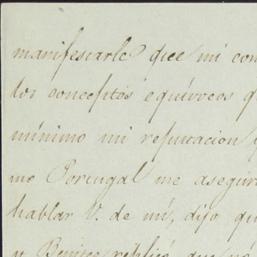 manifestarle que mi con
los conceptos equivocos q
minimo mi reputacion y
mo Portugal me asegur
hablar V. de mi, dijo qu
n Benitez replicó que yo